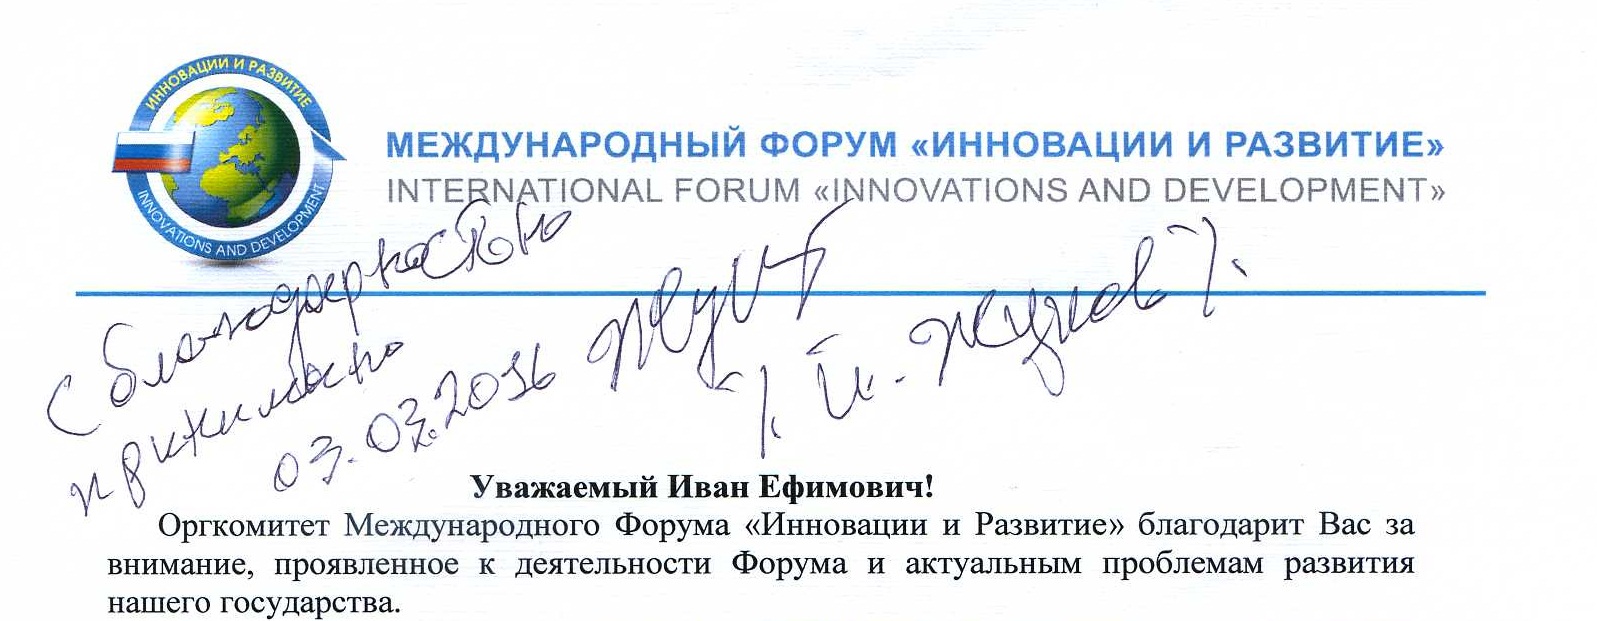 ИННОВАЦИИ И РАЗВИТИЕ
INNOVATIONS AND DEVELOPMENT
МЕЖДУНАРОДНЫЙ ФОРУМ «ИННОВАЦИИ И РАЗВИТИЕ»
INTERNATIONAL FORUM «INNOVATIONS AND DEVELOPMENT»
С благодарностью
03.03.2016
Уважаемый Иван Ефимович!
Оргкомитет Международного Форума «Инновации и Развитие» благодарит Вас за
внимание, проявленное к деятельности Форума и актуальным проблемам развития
нашего государства.